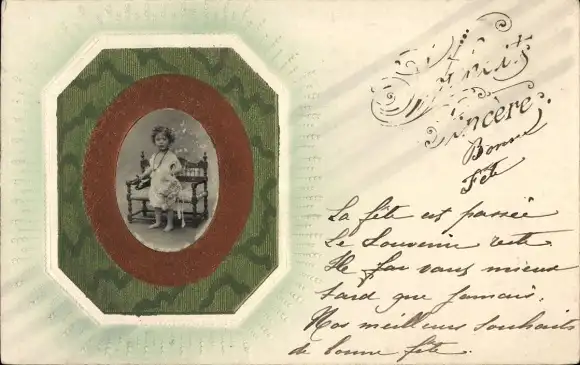 Amitié
Sincère.
Bonne
Fête
La fête est passée
Le Souvenir reste.
Il Fau vaux mieux
tard que Jamais.
Nos meilleurs souhaits
de bonne fête.